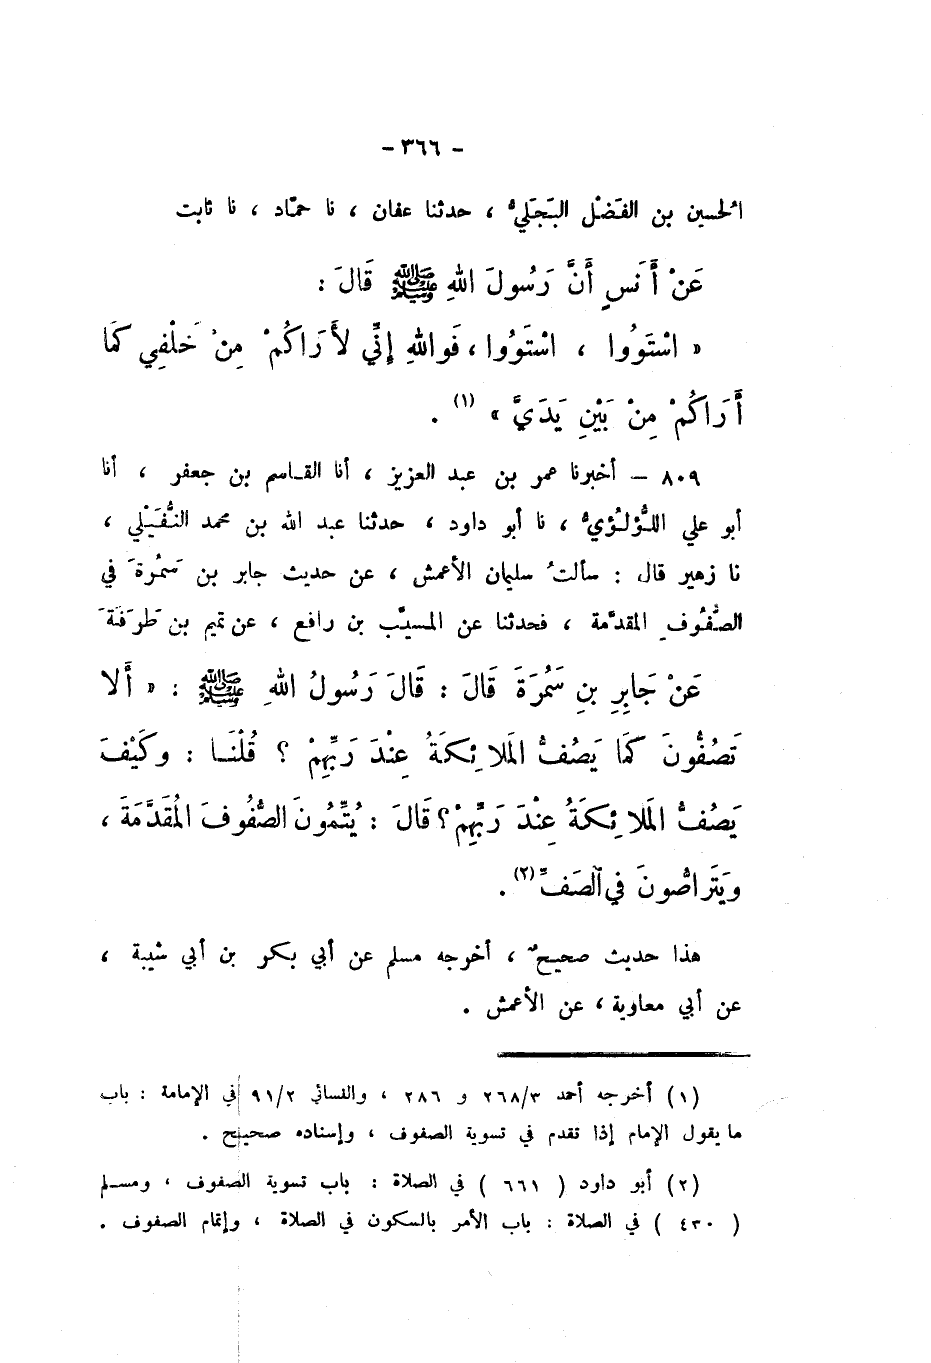 - ٣٦٦ -
الحسين بن الفَضْل البَجَليُّ ، حدثنا عفان ، نا حمّاد ، نا ثابت
عَنْ أَنَسٍ أَنَّ رَسُولَ اللهِ ﷺ قَالَ :
« اسْتَوُوا ، اسْتَوُوا ، فَواللهِ إِنِّي لأَرَاكُمْ مِنْ خَلْفِي كَمَا
أَرَاكُمْ مِنْ بَيْنِ يَدَيَّ » (١) .
٨٠٩ – أخبرنا عمر بن عبد العزيز ، أنا القاسم بن جعفر ، أنا
أبو علي اللُّؤلُؤيُّ ، نا أبو داود ، حدثنا عبد الله بن محمد النُّفَيْلي ،
نا زهير قال : سألتُ سليمان الأعمش ، عن حديث جابر بن سَمُرةَ في
الصُّفُوفِ المقدَّمة ، فحدثنا عن المسيَّب بن رافع ، عن تميم بن طَرَفَةَ
عَنْ جَابِرِ بنِ سَمُرَةَ قَالَ : قَالَ رَسُولُ اللهِ ﷺ : « أَلا
تَصُفُّونَ كَمَا يَصُفُّ المَلائِكَةُ عِنْدَ رَبِّهِمْ ؟ قُلْنَا : وكَيْفَ
يَصُفُّ المَلائِكَةُ عِنْدَ رَبِّهِمْ؟ قَالَ : يُتِمُّونَ الصُّفُوفَ المُقَدَّمَةَ ،
ويَتَراصُّونَ في الصَفِّ (٢) .
هذا حديث صحيحٌ ، أخرجه مسلم عن أبي بكر بن أبي شيبة ،
عن أبي معاوية ، عن الأعمش .
(١) أخرجه أحمد ٢٦٨/٣ و ٢٨٦ ، والنسائي ٩١/٢ في الإمامة : باب
ما يقول الإمام إذا تقدم في تسوية الصفوف ، وإسناده صحيح .
(٢) أبو داود ( ٦٦١ ) في الصلاة : باب تسوية الصفوف ، ومسلم
( ٤٣٠ ) في الصلاة : باب الأمر بالسكون في الصلاة ، وإتمام الصفوف .